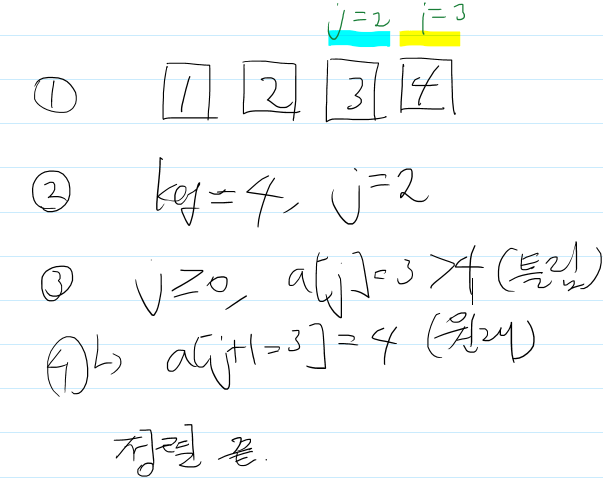 j=2 j=3
① 1 2 3 4
② key=4, j=2
③ j≥0, a[j]=3>4 (틀림)
④ ↳ a[j+1=3]=4 (원래)
정렬 끝.